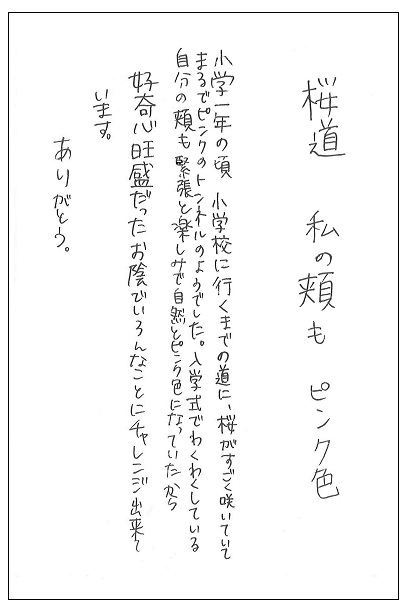 桜道　私の頬も　ピンク色
小学一年の頃　小学校に行くまでの道に、桜がすごく咲いていて
まるでピンクのトンネルのようでした。入学式でわくわくしている
自分の頬も緊張と楽しみで自然とピンク色になっていたから
好奇心旺盛だったお陰でいろんなことにチャレンジ出来て
います。
ありがとう。